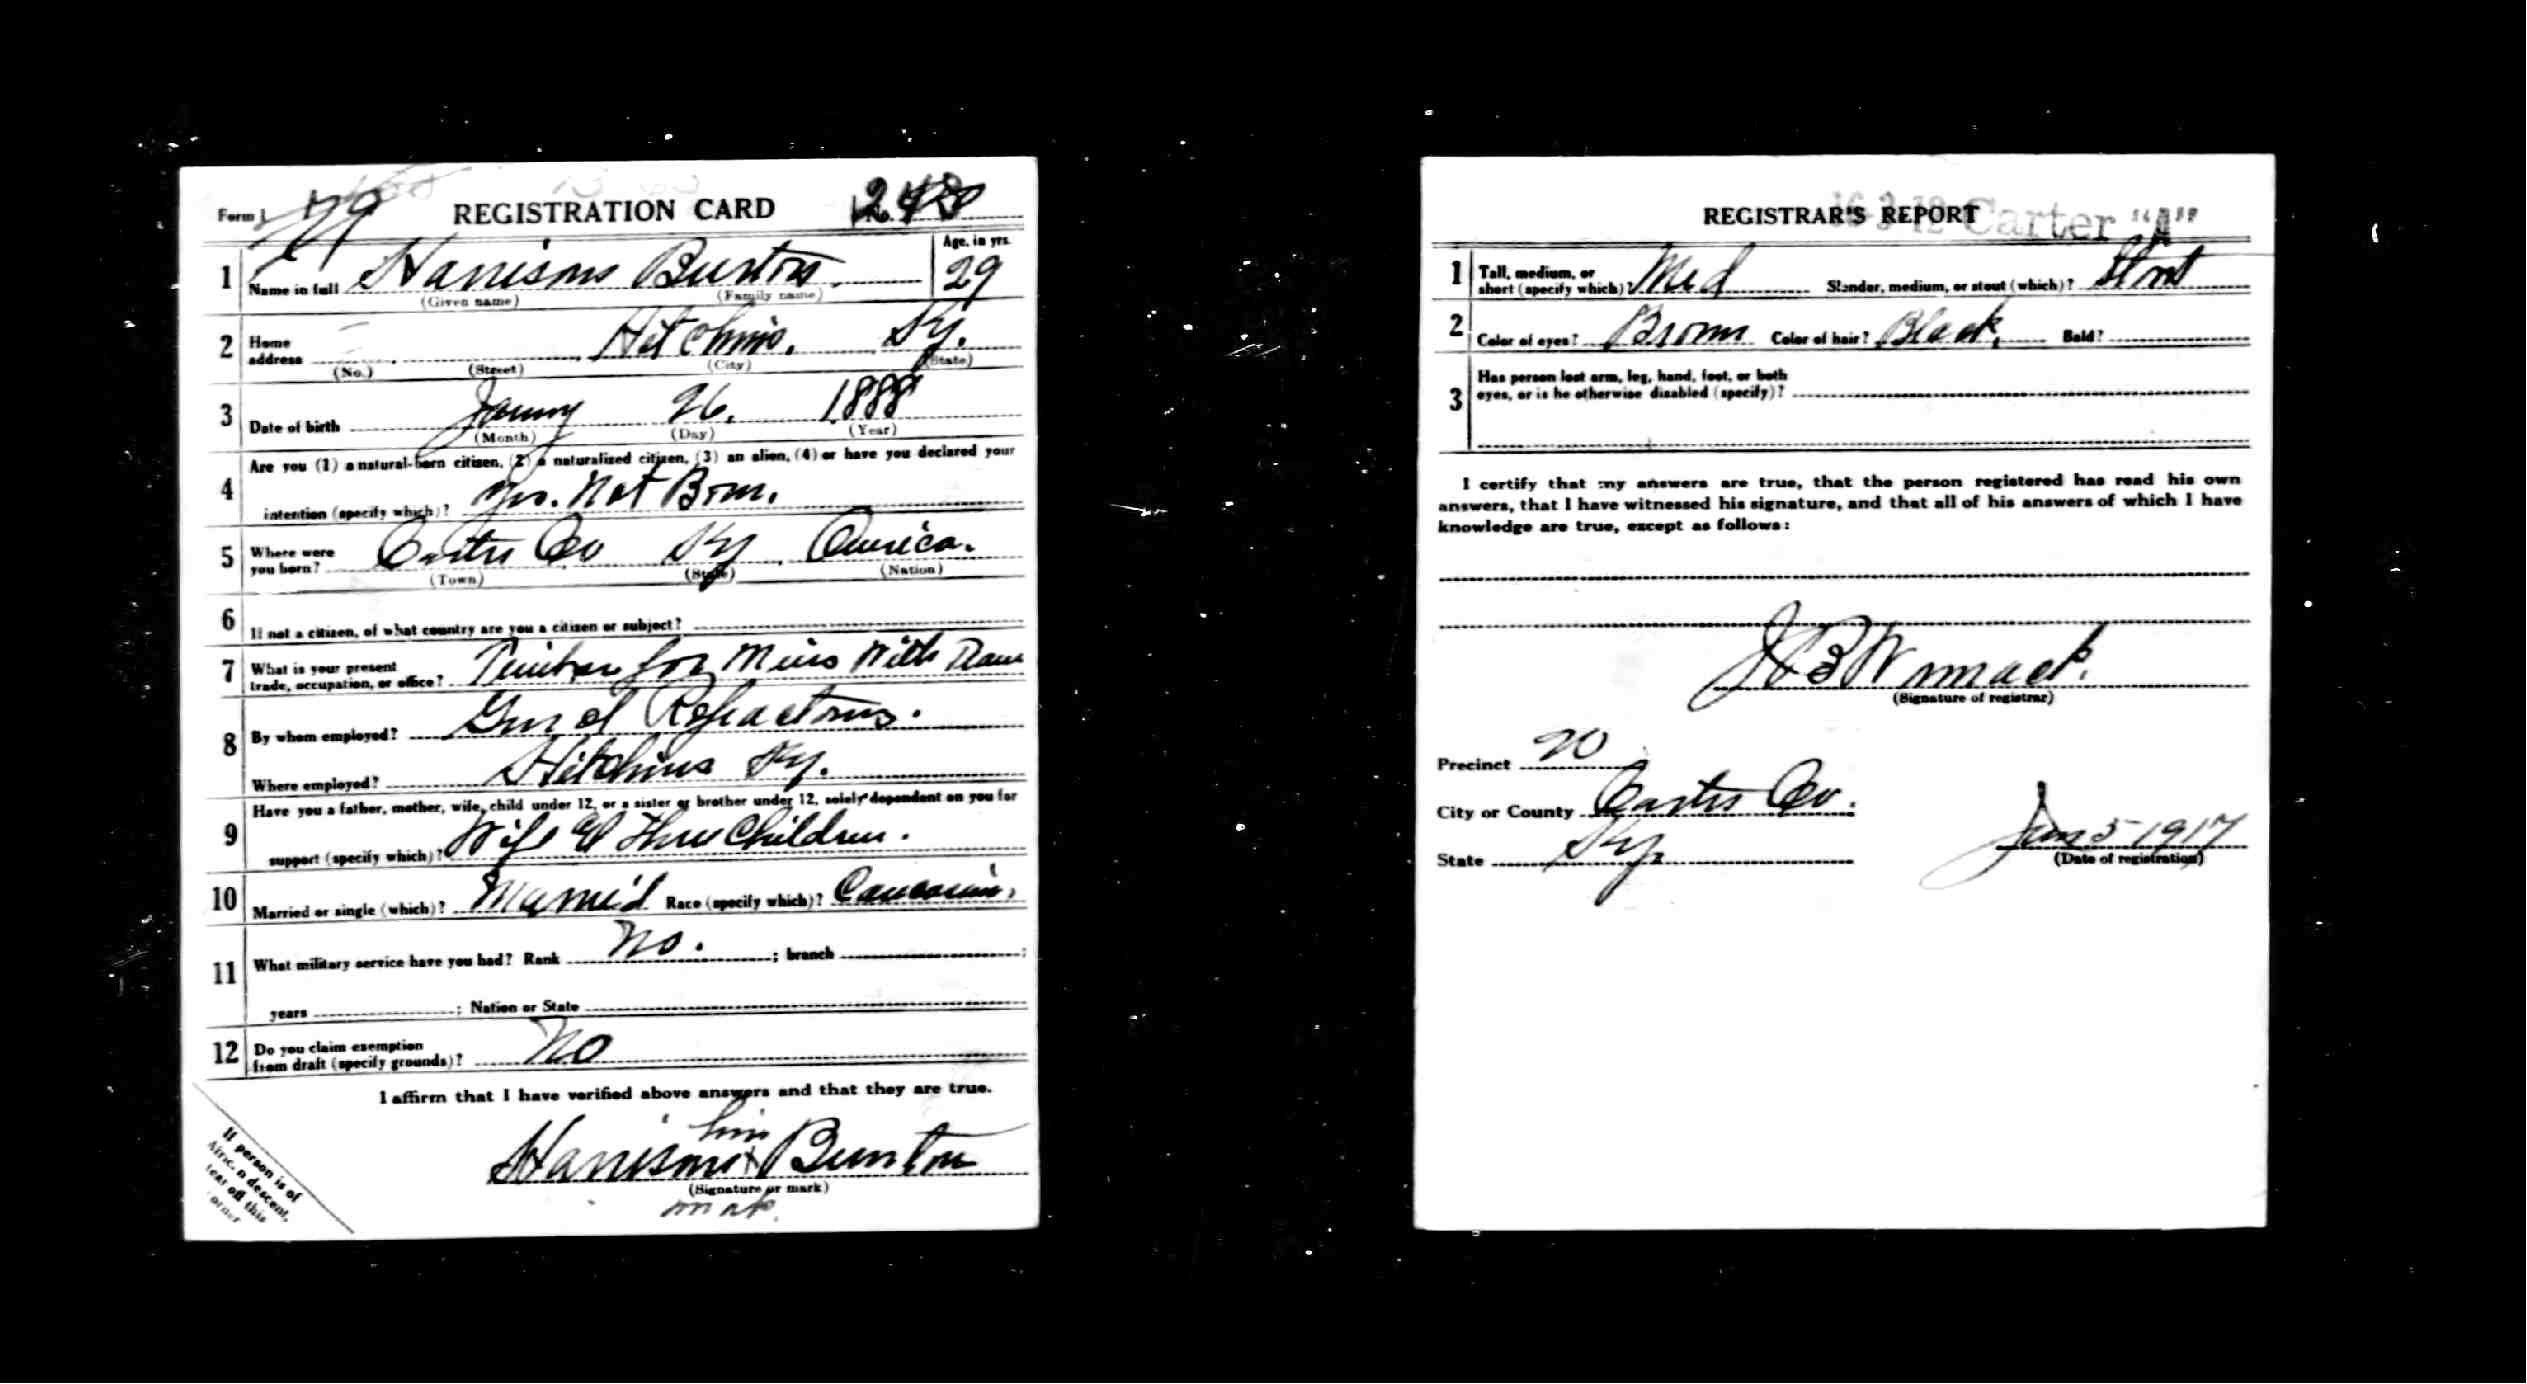 Form 1 79 REGISTRATION CARD No. 248
1 Name in full Harrison Burton. Age, in yrs. 29
(Given name) (Family name)
2 Home address Hitchins, Ky.
(No.) (Street) (City) (State)
3 Date of birth 26, 1888
(Month) (Day) (Year)
4 Are you (1) a natural-born citizen, (2) a naturalized citizen, (3) an alien, (4) or have you declared your
intention (specify which)? Yes. Nat Born.
5 Where were you born? Carter Co Ky America.
(Town) (State) (Nation)
6 If not a citizen, of what country are you a citizen or subject?
7 What is your present
trade, occupation, or office? for With
8 By whom employed? Refractories.
Where employed? Hitchins Ky.
9 Have you a father, mother, wife, child under 12, or a sister or brother under 12, solely dependent on you for
support (specify which)? Wife & Three Children.
10 Married or single (which)? Married Race (specify which)? Caucasian.
11 What military service have you had? Rank No. ; branch ;
years ; Nation or State
12 Do you claim exemption
from draft (specify grounds)? No
I affirm that I have verified above answers and that they are true.
his
Harrison x Burton
(Signature or mark)
mark.
If person is of
African descent,
tear off this
corner
REGISTRAR'S REPORT
16-3-12 Carter "A"
1 Tall, medium, or
short (specify which)? Med Slender, medium, or stout (which)? Stout
2 Color of eyes? Brown Color of hair? Black. Bald?
3 Has person lost arm, leg, hand, foot, or both
eyes, or is he otherwise disabled (specify)?
I certify that my answers are true, that the person registered has read his own
answers, that I have witnessed his signature, and that all of his answers of which I have
knowledge are true, except as follows:
J B Womack.
(Signature of registrar)
Precinct 20
City or County Carter Co.
State Ky.
June 5 1917
(Date of registration)